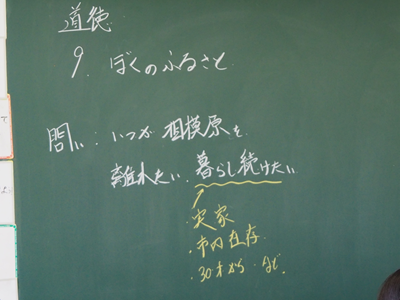 道徳
9. ぼくのふるさと
問い:いつか相模原を
離れたい.暮らし続けたい
・実家
・市内在存
・30才から など.